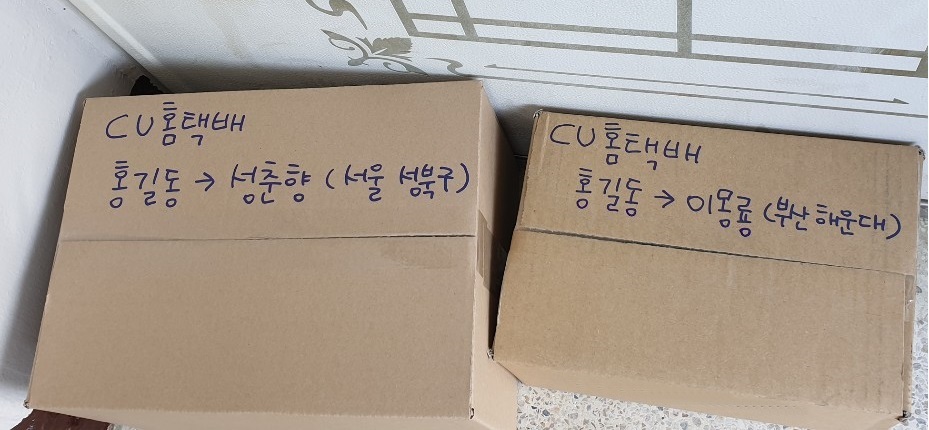 CU홈택배
홍길동 → 성춘향 (서울 성북구)
CU홈택배
홍길동 → 이몽룡 (부산해운대)